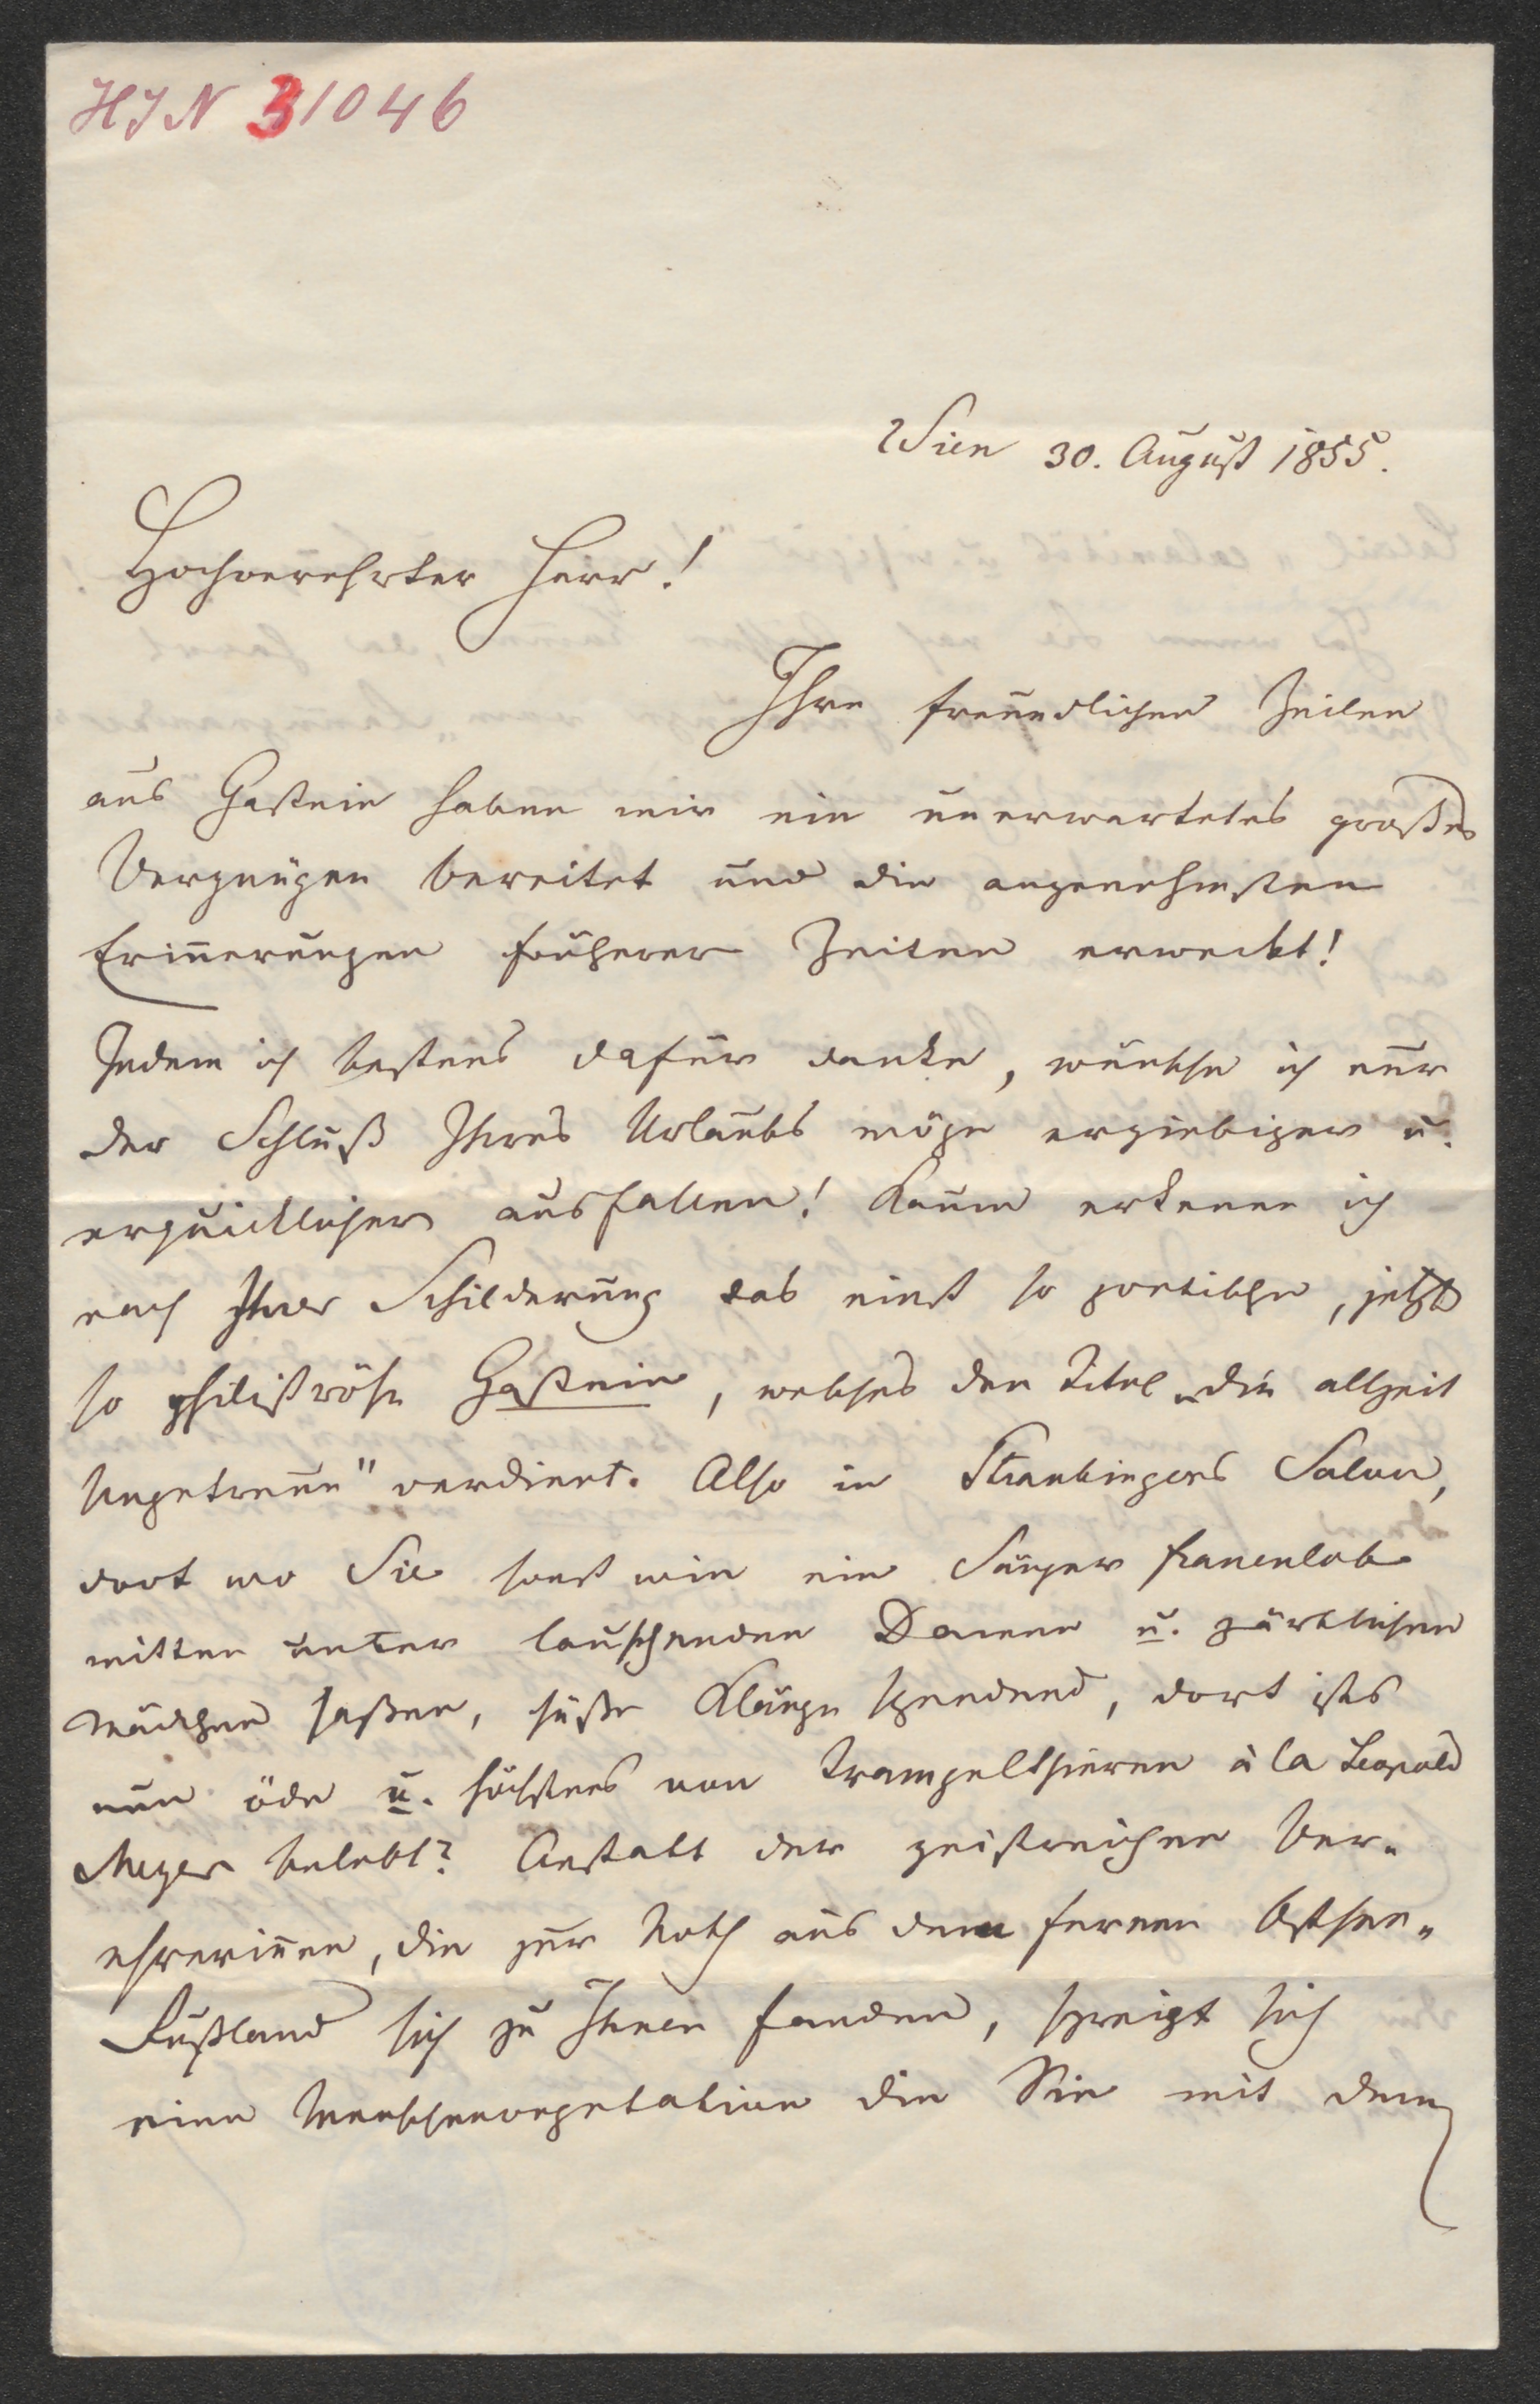 HJN 31046
Wien 30. August 1855.
Hochverehrter Herr!
Ihre freundlichen Zeilen
aus Gastein haben mir ein unerwartetes großes
Vergnügen bereitet und die angenehmsten
Erin̄erungen früherer Zeiten erweckt!
Indem ich bestens dafür danke, wünsche ich nur
der Schluß Ihres Urlaubs möge ergiebiger u.
erquicklicher ausfallen! Kaum erkenne ich
nach Ihrer Schilderung das einst so poetische, jetzt
so philiströse Gastein, welches den Titel „die allzeit
Ungetreue" verdient. Also in Straubingers Salon,
dort wo Sie sonst wie ein Sänger Frauenlob
mitten unter lauschenden Damen u. zärtlichen
Mädchen saßen, süße Klänge spendend, dort ists
nun öde u. höchstens von Trampelthieren à la Leopold
Meyer belebt? Anstatt der geistreichen Ver-
ehrerin̄en, die zur Noth aus dem fernen Ostsee-
Rußland sich zu Ihnen fanden, spreizt sich
eine Menschenvegetation die Sie mit dem